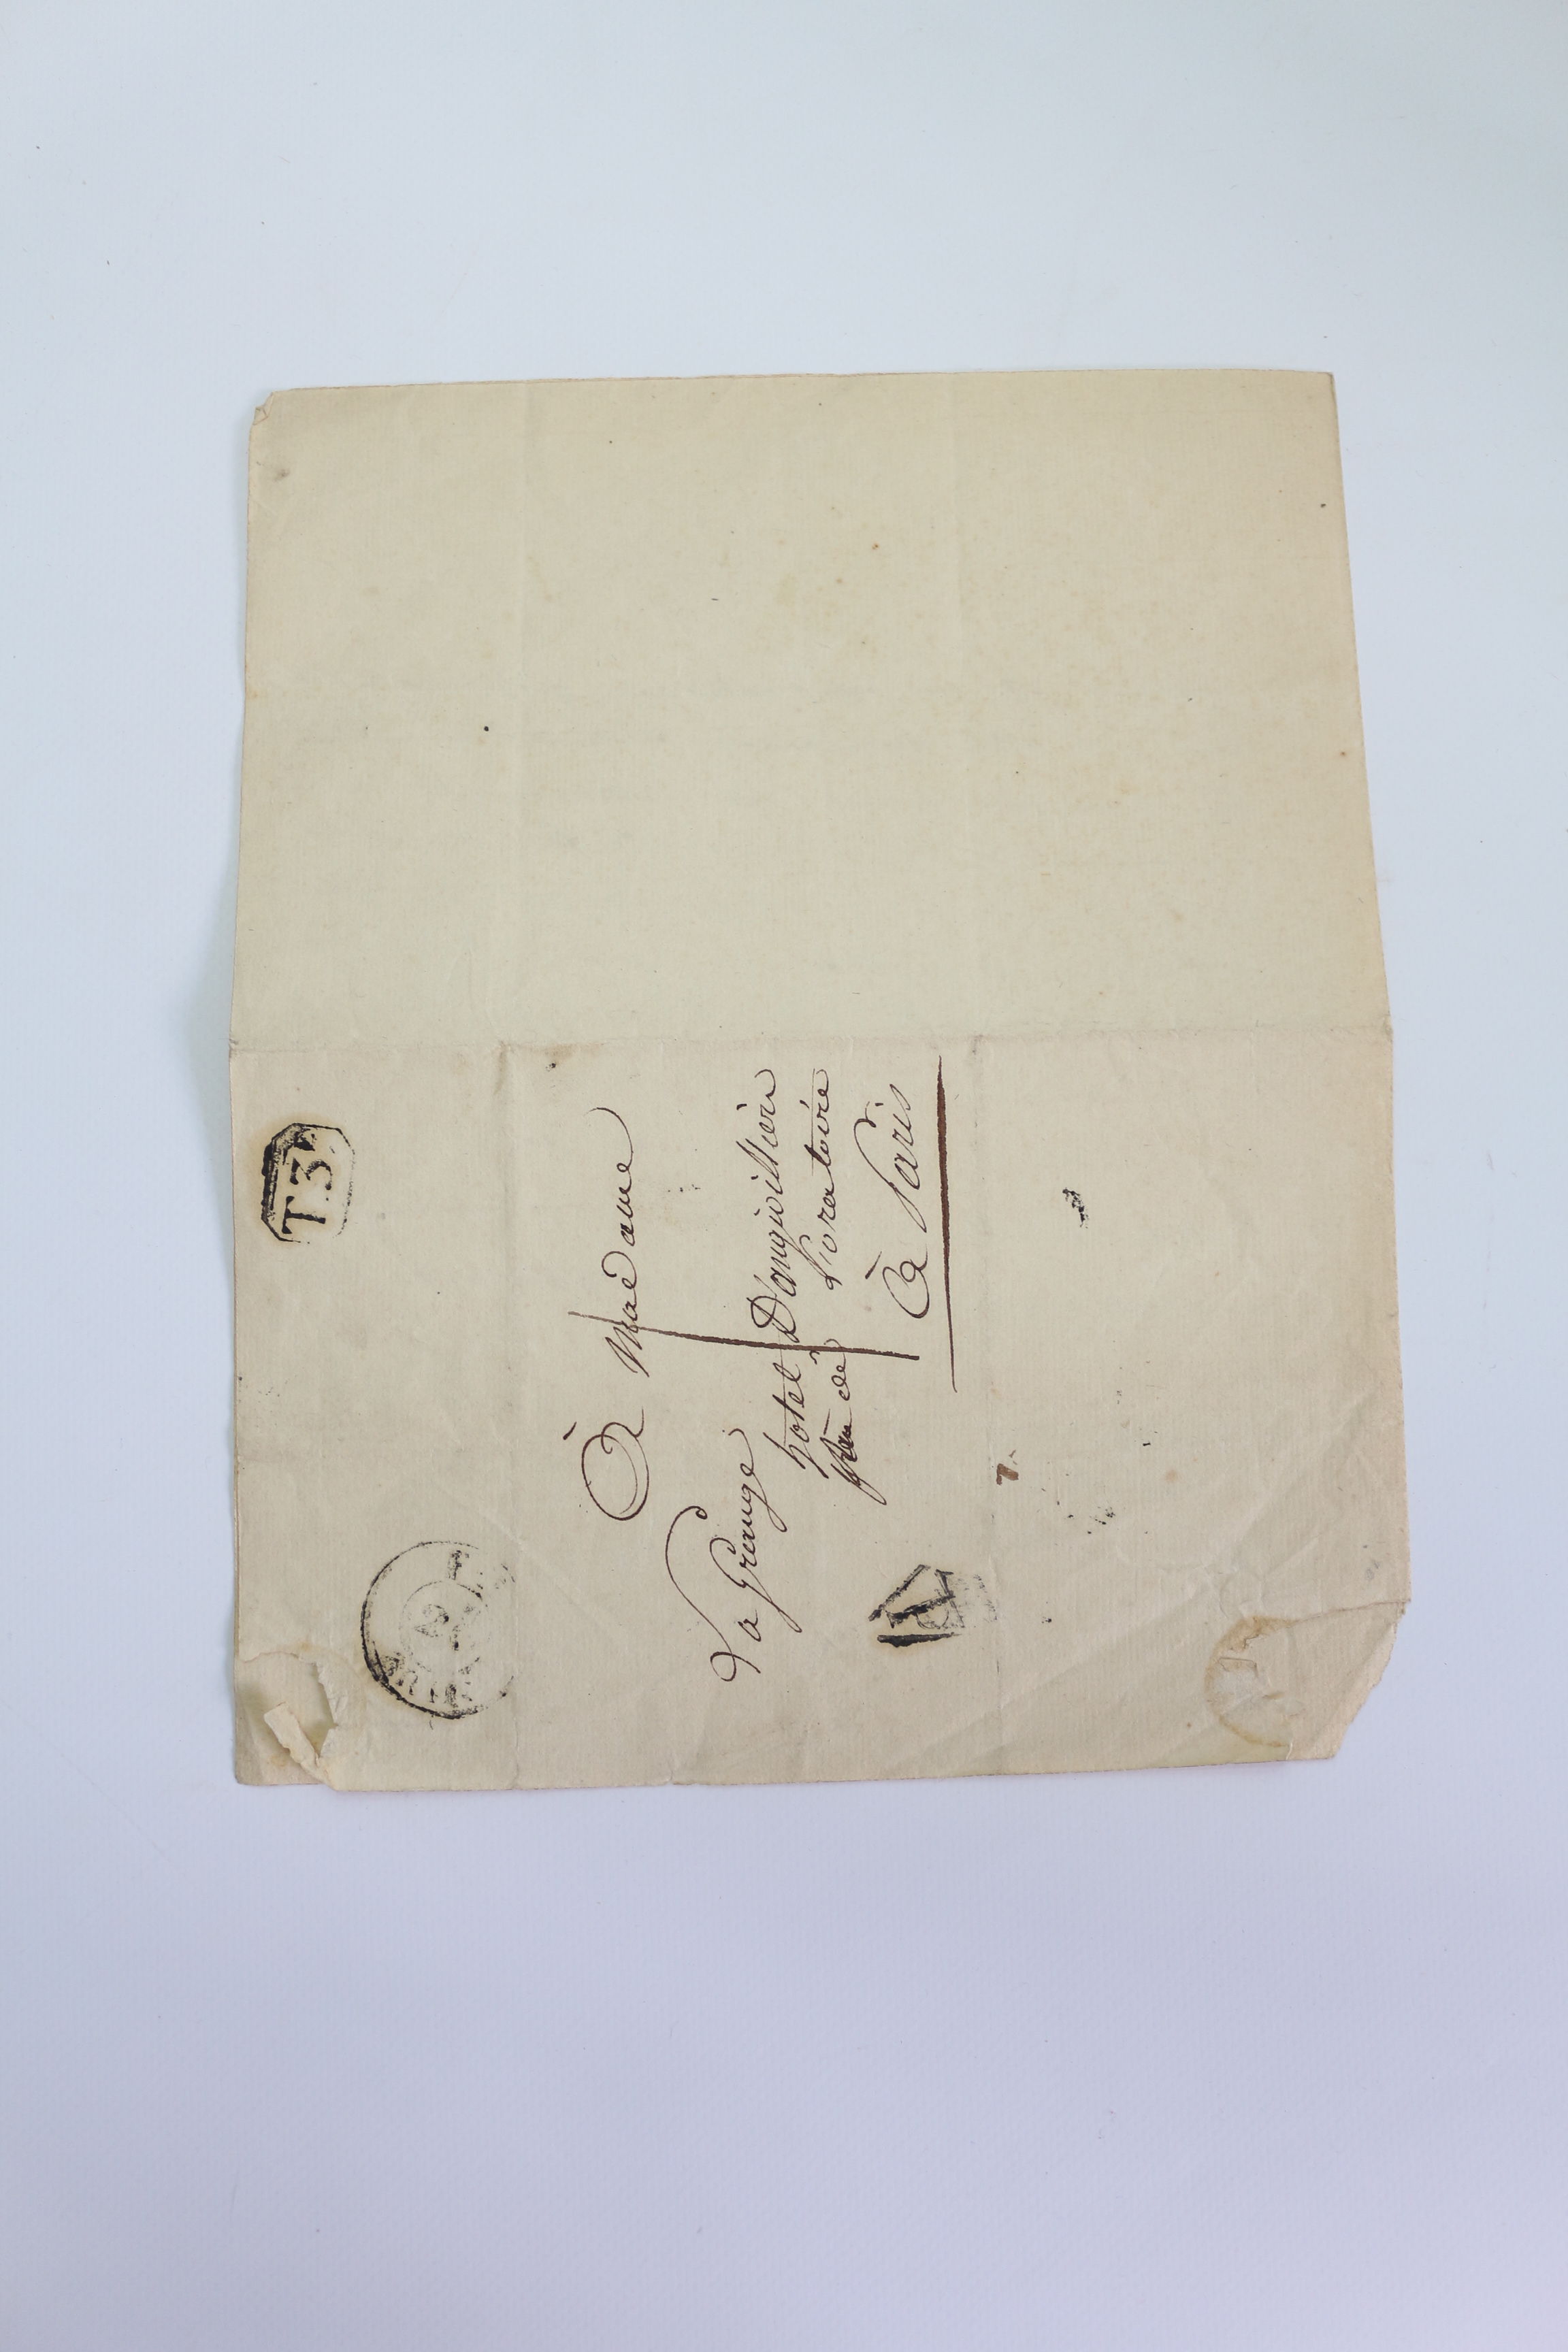 À Madame
La Grange
hotel D'angivillier
Rue de l'oratoire
À Paris
T.3.